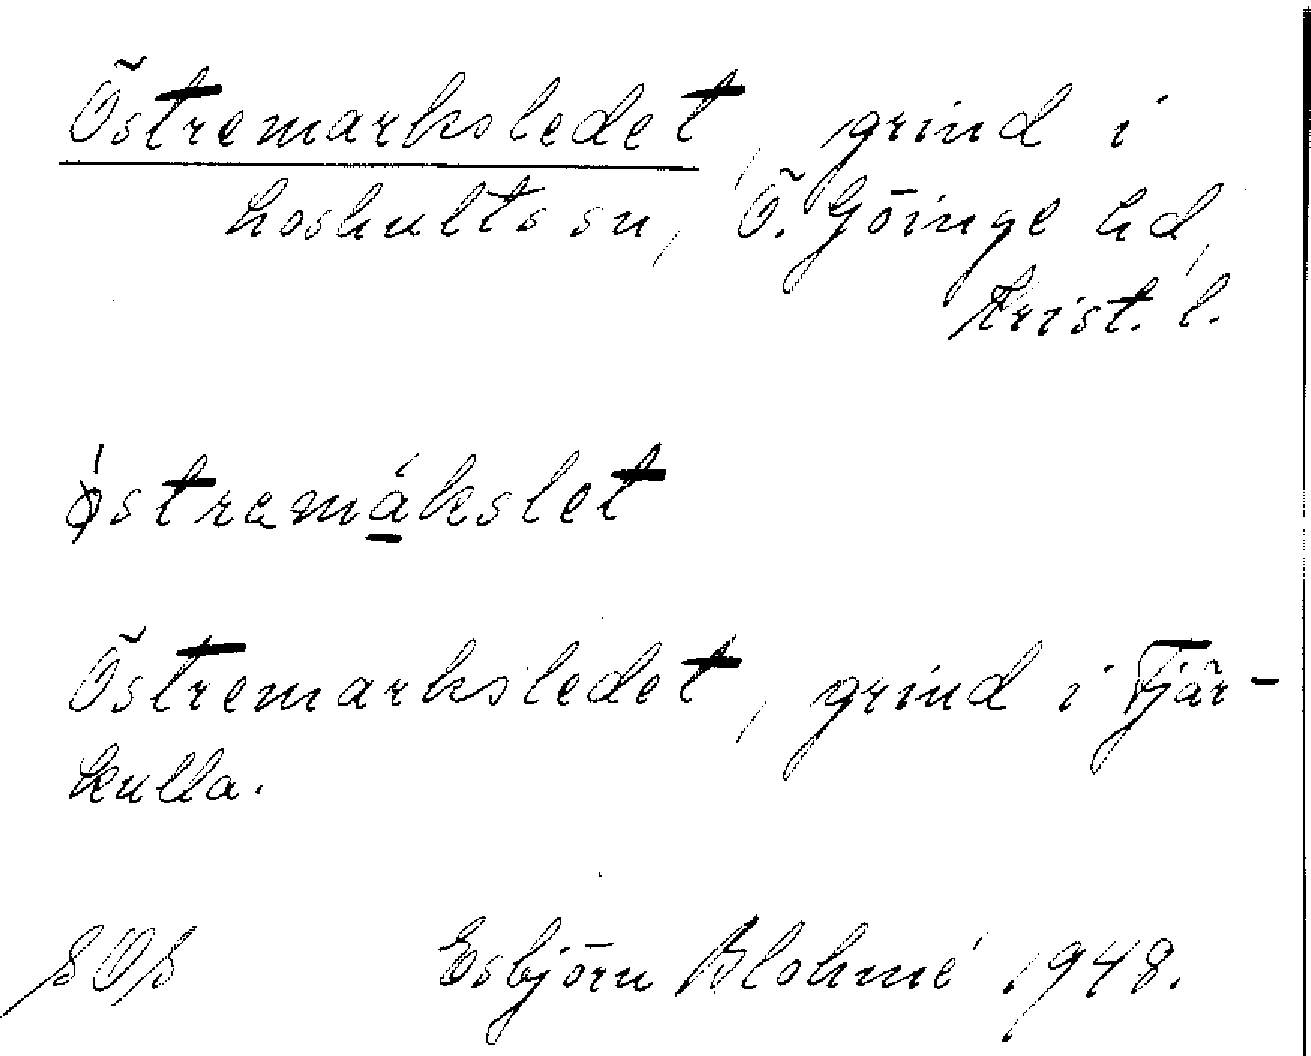 Östremarksledet, grind i
Loshults sn, Ö. Göinge hd,
Krist. l.
ǿstramákslet
Östremarksledet, grind i Tjär-
kulla.
Esbjörn Blohmé 1948.